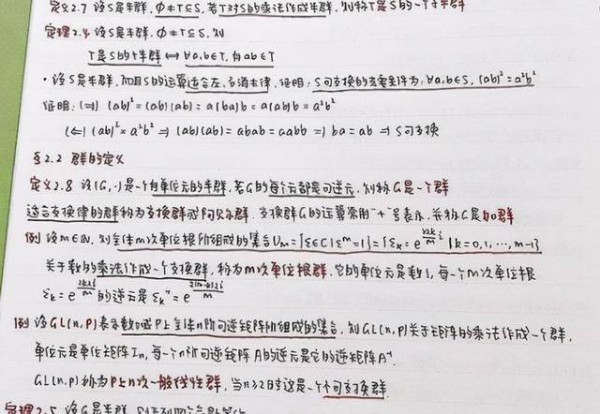 定义2.7 设S是半群,Φ≠T⊆S,若T对S的乘法作成半群,则称T是S的一个子半群
定理2.4 设S是半群,Φ≠T⊆S,则
T是S的子半群 ⟺ ∀a,b∈T,有ab∈T
• 设S是半群,而且S的运算适合左、右消去律,证明:S可交换的充要条件为:∀a,b∈S,(ab)²=a²b²
证明:(⇒) (ab)²=(ab)(ab)=a(ba)b=a(ab)b=a²b²
(⇐) (ab)²=a²b² ⇒ (ab)(ab)=abab=aabb ⇒ ba=ab ⇒ S可交换
§2.2 群的定义
定义2.8 设(G,·)是一个有单位元的半群,若G的每个元都是可逆元,则称G是一个群
适合交换律的群称为交换群或阿贝尔群,交换群G的运算常用"+"号表示,并称G是加群
例 设m∈ℕ,则全体m次单位根所组成的集合Uₘ={ε∈C|εᵐ=1}={εₖ=e^(2kπi/m)|k=0,1,…,m-1}
关于数的乘法作成一个交换群,称为m次单位根群,它的单位元是数1,每一个m次单位根
εₖ=e^(2kπi/m)的逆元是εₖ⁻¹=e^(2(m-k)πi/m)
例 设GL(n,P)表示数域P上全体n阶可逆矩阵所组成的集合,则GL(n,P)关于矩阵的乘法作成一个群,
单位元是单位矩阵Iₙ,每一个n阶可逆矩阵A的逆元是它的逆矩阵A⁻¹
GL(n,P)称为P上n次一般线性群,当n≥2时这是一个不可交换群
定理2.5 设G是半群,则下列四个命题等价